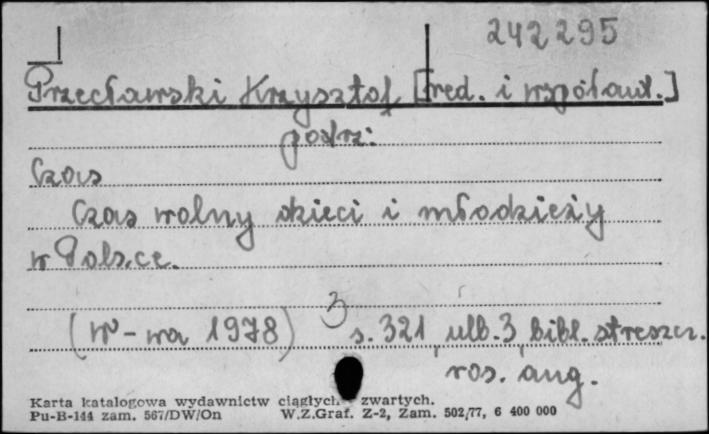 242295
Przecławski Krzysztof [red. i współaut.]
patrz:
Czas
Czas wolny dzieci i młodzieży
w Polsce.
(W-wa 1978) 3 s. 321, ulb. 3, bibl. streszcz.
ros. ang.
Karta katalogowa wydawnictw ciągłych zwartych.
Pu-B-144 zam. 567/DW/On W.Z.Graf. Z-2, Zam. 502/77, 6 400 000